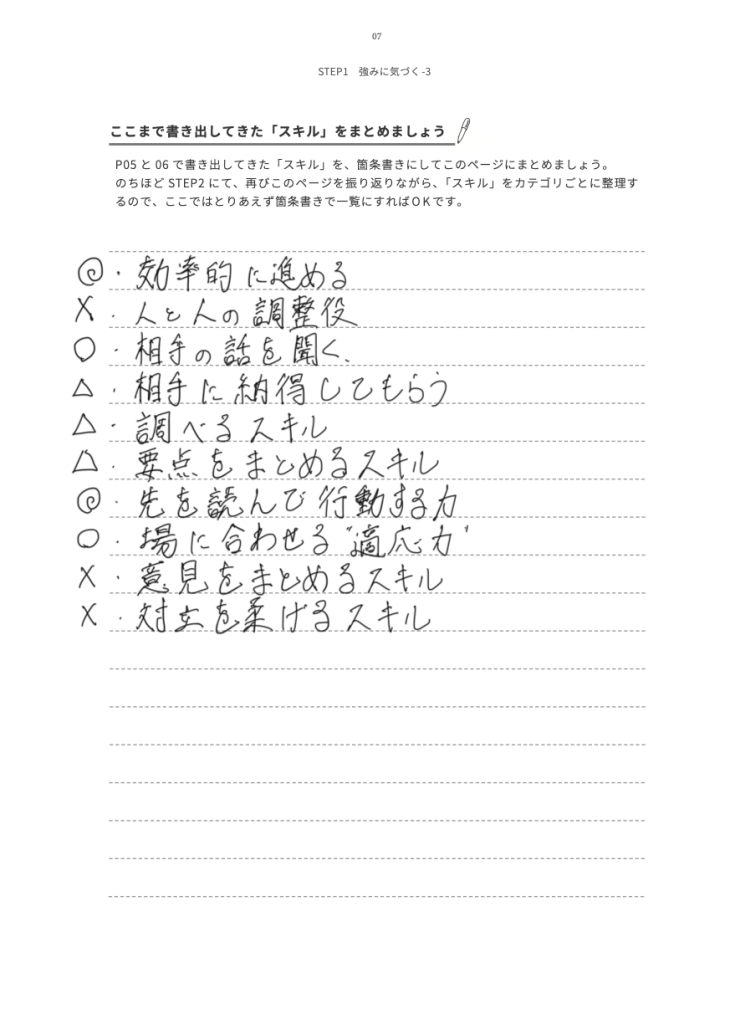 07
STEP1 強みに気づく-3
ここまで書き出してきた「スキル」をまとめましょう
P05 と 06 で書き出してきた「スキル」を、箇条書きにしてこのページにまとめましょう。
のちほど STEP2 にて、再びこのページを振り返りながら、「スキル」をカテゴリごとに整理す
るので、ここではとりあえず箇条書きで一覧にすればOKです。
◎・効率的に進める
X・人と人の調整役
○・相手の話を聞く、
△・相手に納得してもらう
△・調べるスキル
△・要点をまとめるスキル
◎・先を読んで行動する力
○・場に合わせる“適応力”
X・意見をまとめるスキル
X・対立を柔げるスキル